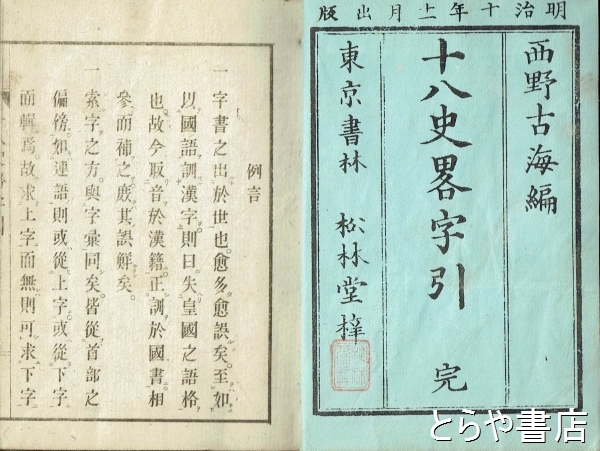 明治十年十一月出版
西野古海編
十八史畧字引 完
東京書林 松林堂梓
例言
一字書之出於世也。愈多愈誤矣。至如
以國語訓漢字則曰失皇國之語格
也故今取音於漢籍。正訓於國書。相
參而補之。庶其誤鮮矣。
一索字之方。與字彙同矣。皆從首部之
偏傍。如連語則或從上字。或從下字
而輯焉。故求上字而無則可求下字
とらや書店